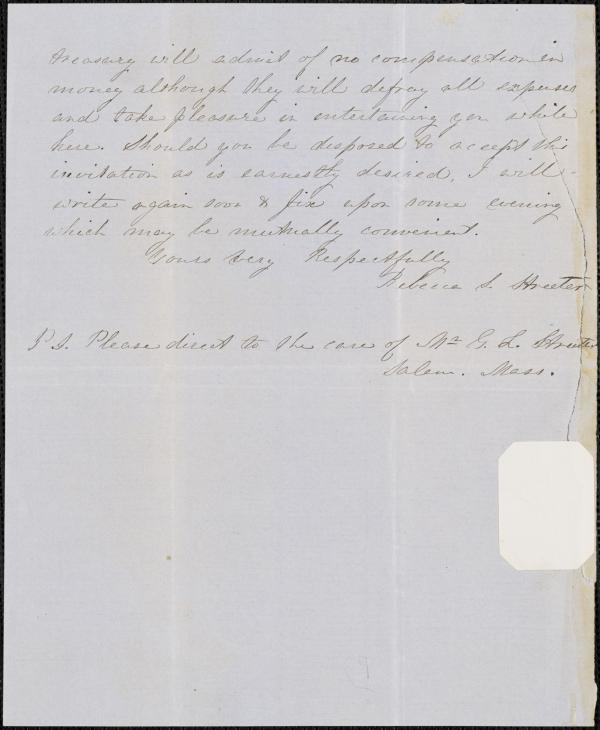 treasury will admit of no compensation in
money although they will defray all expenses
and take pleasure in entertaining you while
here. Should you be disposed to accept this
invitation as is earnestly desired, I will
write again soon & fix upon some evening
which may be mutually convenient.
Yours very Respectfully
Rebecca S. Streeter
P S. Please direct to the care of Mr G. L. Streeter
Salem. Mass.